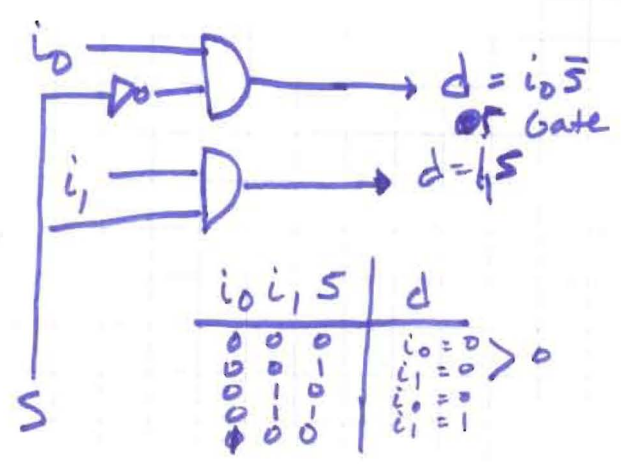 i₀
d = i₀s̄
Gate
i₁
d = i₁s
i₀ i₁ S d
0 0 0 i₀ = 0
0 0 1 i₁ = 0 > 0
0 1 0 i₀ = 0
0 1 1 i₁ = 1
0 0
S